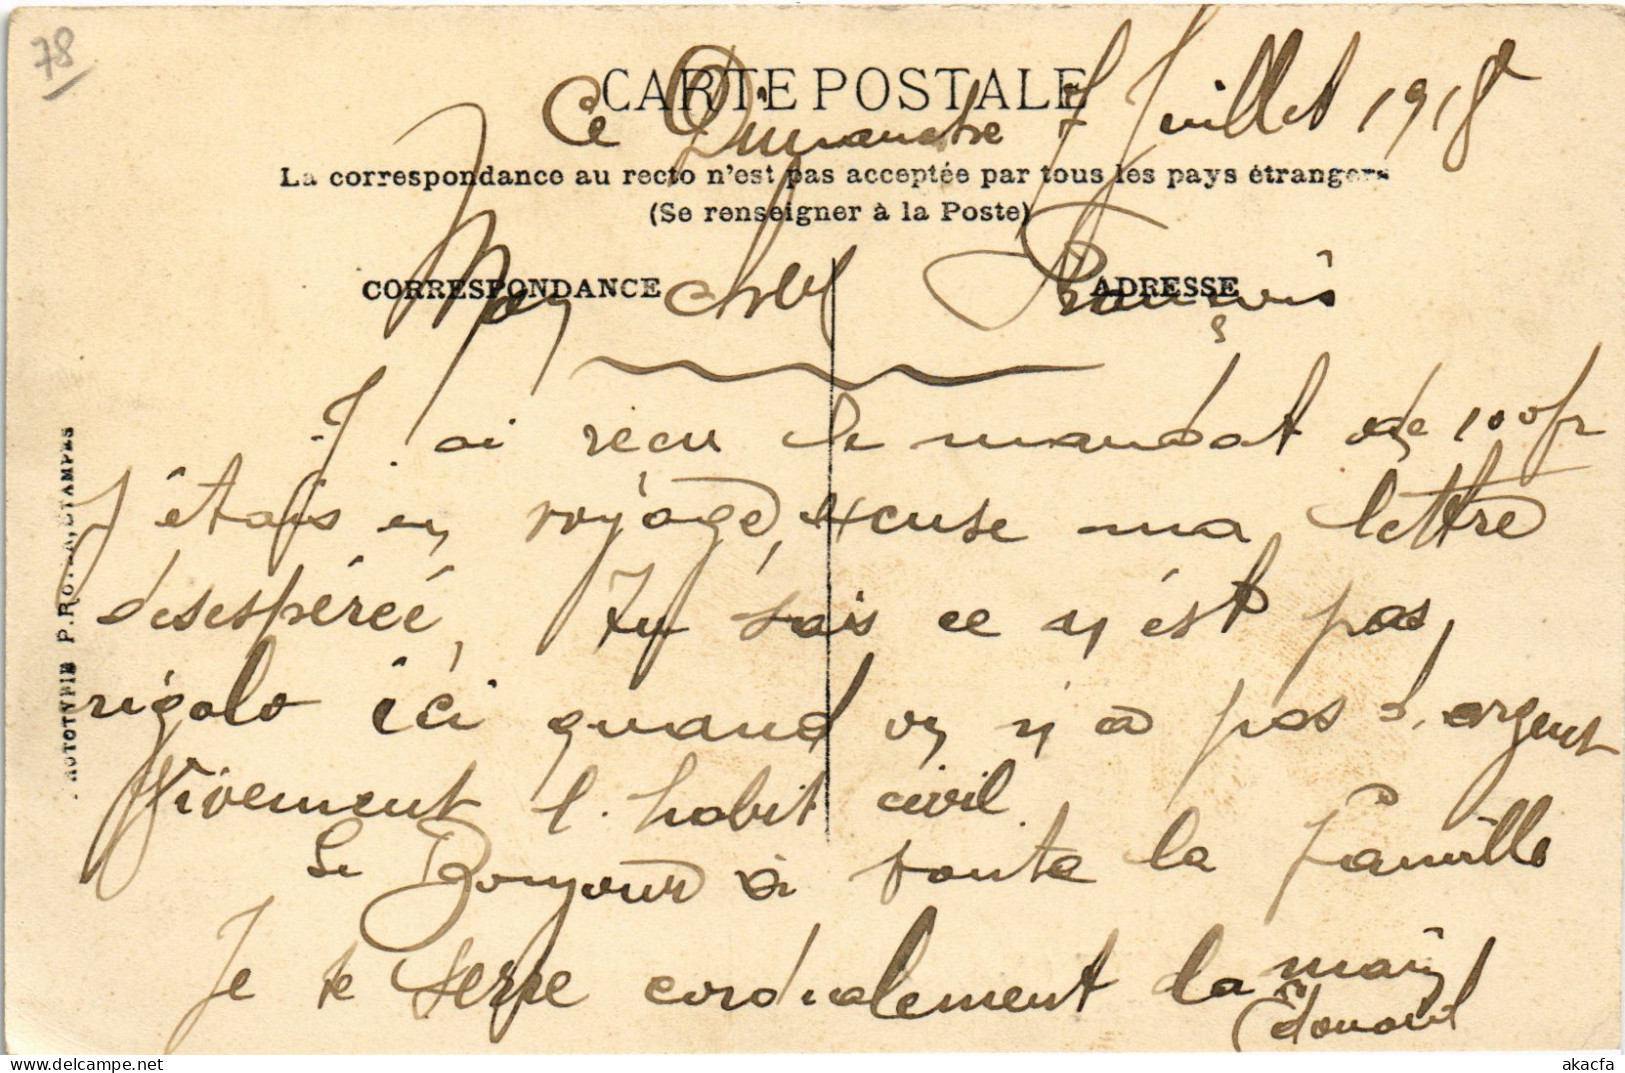 78
CARTE POSTALE
Ce Dimanche 7 Juillet 1918
La correspondance au recto n'est pas acceptée par tous les pays étrangers
(Se renseigner à la Poste)
CORRESPONDANCE
ADRESSE
Mon cher François
J'ai recu le mandat de 100fr
J'étais en voyage, excuse ma lettre
désespéréé, Tu sais ce n'est pas
rigolo ici quand on n'a pas d'argent
Vivement l'habit civil
Le Bonjour à toute la Famille
Je te serre cordialement la main
Edouard
PHOTOTYPIE P. ETAMPES
akacfa